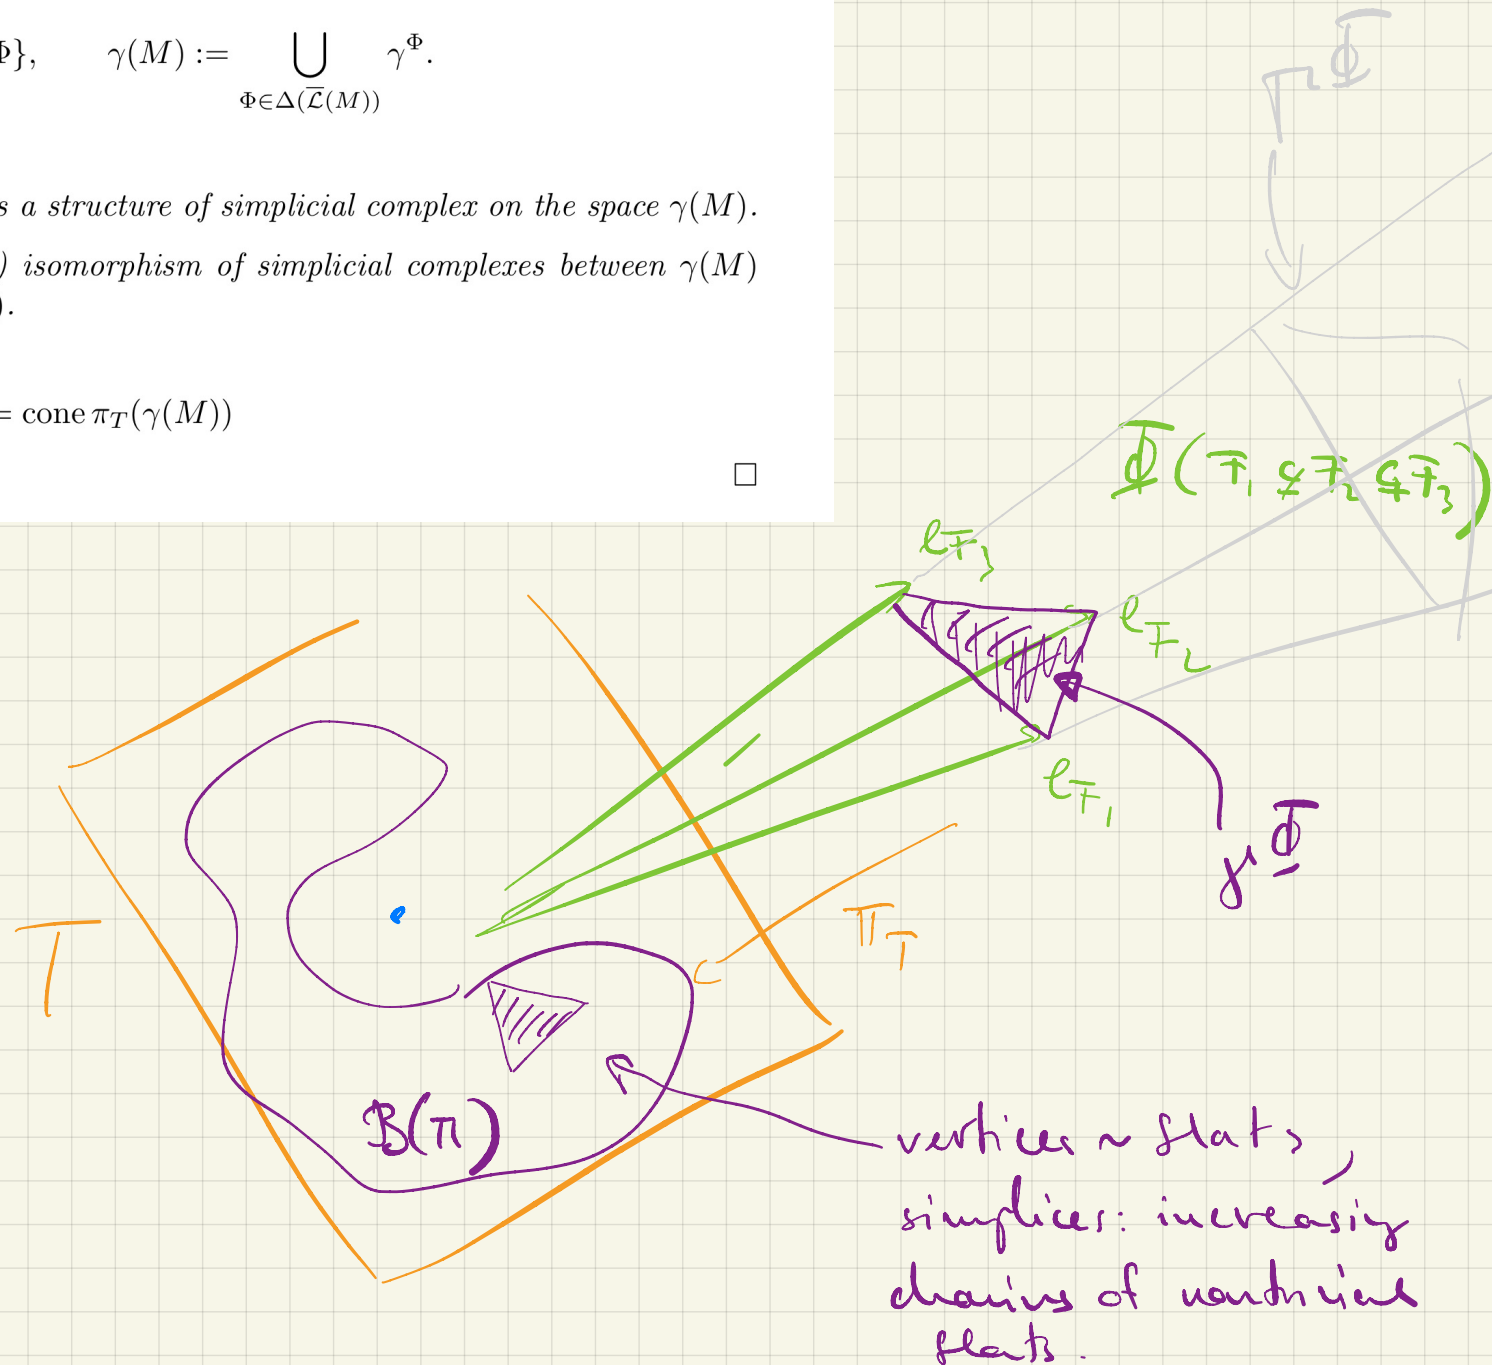 Φ}, γ(M) := ⋃ γ^Φ.
Φ∈Δ(ℒ̅(M))
s a structure of simplicial complex on the space γ(M).
) isomorphism of simplicial complexes between γ(M)
).
= cone π_T(γ(M))
□
Γ^Φ
Φ(F₁ ⊊ F₂ ⊊ F₃)
e_{F₃}
e_{F₂}
e_{F₁}
γ^Φ
T
π_T
B(π)
vertices ~ flats,
simplices: increasing
chains of nontrivial
flats.